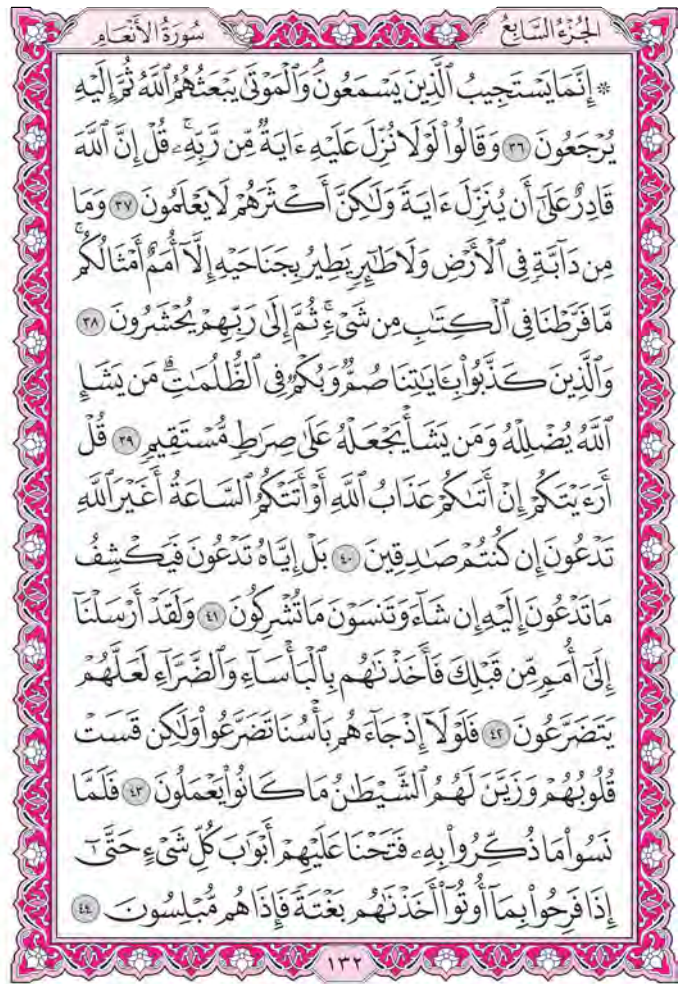 سُورَةُ الأَنْعَامِ
الجُزْءُ السَّابِعُ
۞ إِنَّمَا يَسْتَجِيبُ ٱلَّذِينَ يَسْمَعُونَۘ وَٱلْمَوْتَىٰ يَبْعَثُهُمُ ٱللَّهُ ثُمَّ إِلَيْهِ
يُرْجَعُونَ ٣٦ وَقَالُوا۟ لَوْلَا نُزِّلَ عَلَيْهِ ءَايَةٌ مِّن رَّبِّهِۦۚ قُلْ إِنَّ ٱللَّهَ
قَادِرٌ عَلَىٰٓ أَن يُنَزِّلَ ءَايَةً وَلَٰكِنَّ أَكْثَرَهُمْ لَا يَعْلَمُونَ ٣٧ وَمَا
مِن دَآبَّةٍ فِى ٱلْأَرْضِ وَلَا طَٰٓئِرٍ يَطِيرُ بِجَنَاحَيْهِ إِلَّآ أُمَمٌ أَمْثَالُكُمۚ
مَّا فَرَّطْنَا فِى ٱلْكِتَٰبِ مِن شَىْءٍۚ ثُمَّ إِلَىٰ رَبِّهِمْ يُحْشَرُونَ ٣٨
وَٱلَّذِينَ كَذَّبُوا۟ بِـَٔايَٰتِنَا صُمٌّ وَبُكْمٌ فِى ٱلظُّلُمَٰتِۗ مَن يَشَإِ
ٱللَّهُ يُضْلِلْهُ وَمَن يَشَأْ يَجْعَلْهُ عَلَىٰ صِرَٰطٍ مُّسْتَقِيمٍ ٣٩ قُلْ
أَرَءَيْتَكُمْ إِنْ أَتَىٰكُمْ عَذَابُ ٱللَّهِ أَوْ أَتَتْكُمُ ٱلسَّاعَةُ أَغَيْرَ ٱللَّهِ
تَدْعُونَ إِن كُنتُمْ صَٰدِقِينَ ٤٠ بَلْ إِيَّاهُ تَدْعُونَ فَيَكْشِفُ
مَا تَدْعُونَ إِلَيْهِ إِن شَآءَ وَتَنسَوْنَ مَا تُشْرِكُونَ ٤١ وَلَقَدْ أَرْسَلْنَآ
إِلَىٰٓ أُمَمٍ مِّن قَبْلِكَ فَأَخَذْنَٰهُم بِٱلْبَأْسَآءِ وَٱلضَّرَّآءِ لَعَلَّهُمْ
يَتَضَرَّعُونَ ٤٢ فَلَوْلَآ إِذْ جَآءَهُم بَأْسُنَا تَضَرَّعُوا۟ وَلَٰكِن قَسَتْ
قُلُوبُهُمْ وَزَيَّنَ لَهُمُ ٱلشَّيْطَٰنُ مَا كَانُوا۟ يَعْمَلُونَ ٤٣ فَلَمَّا
نَسُوا۟ مَا ذُكِّرُوا۟ بِهِۦ فَتَحْنَا عَلَيْهِمْ أَبْوَٰبَ كُلِّ شَىْءٍ حَتَّىٰٓ
إِذَا فَرِحُوا۟ بِمَآ أُوتُوٓا۟ أَخَذْنَٰهُم بَغْتَةً فَإِذَا هُم مُّبْلِسُونَ ٤٤
١٣٢